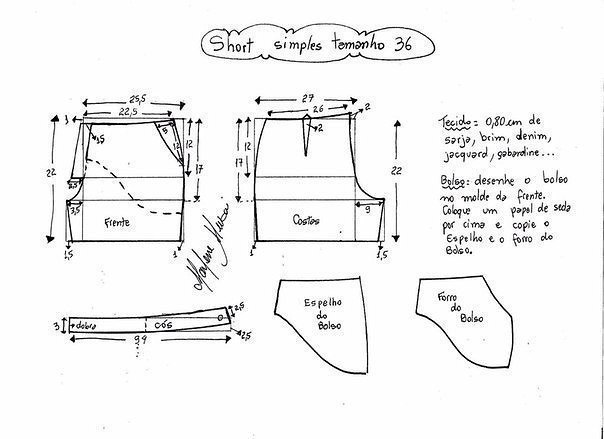 Short simples tamanho 36
25,5
22,5
3
1,5
5
12
12
17
22
2,5
3,5
Frente
1,5
1
27
26
2
2
12
17
22
9
Costas
1
1,5
Tecido = 0,80cm de
sarja, brim, denim,
jacquard, gabardine...
Bolso: desenhe o bolso
no molde da frente.
Coloque um papel de seda
por cima e copie o
Espelho e o forro do
Bolso.
3
dobra
cós
2,5
2,5
Espelho
do
Bolso
Forro
do
Bolso